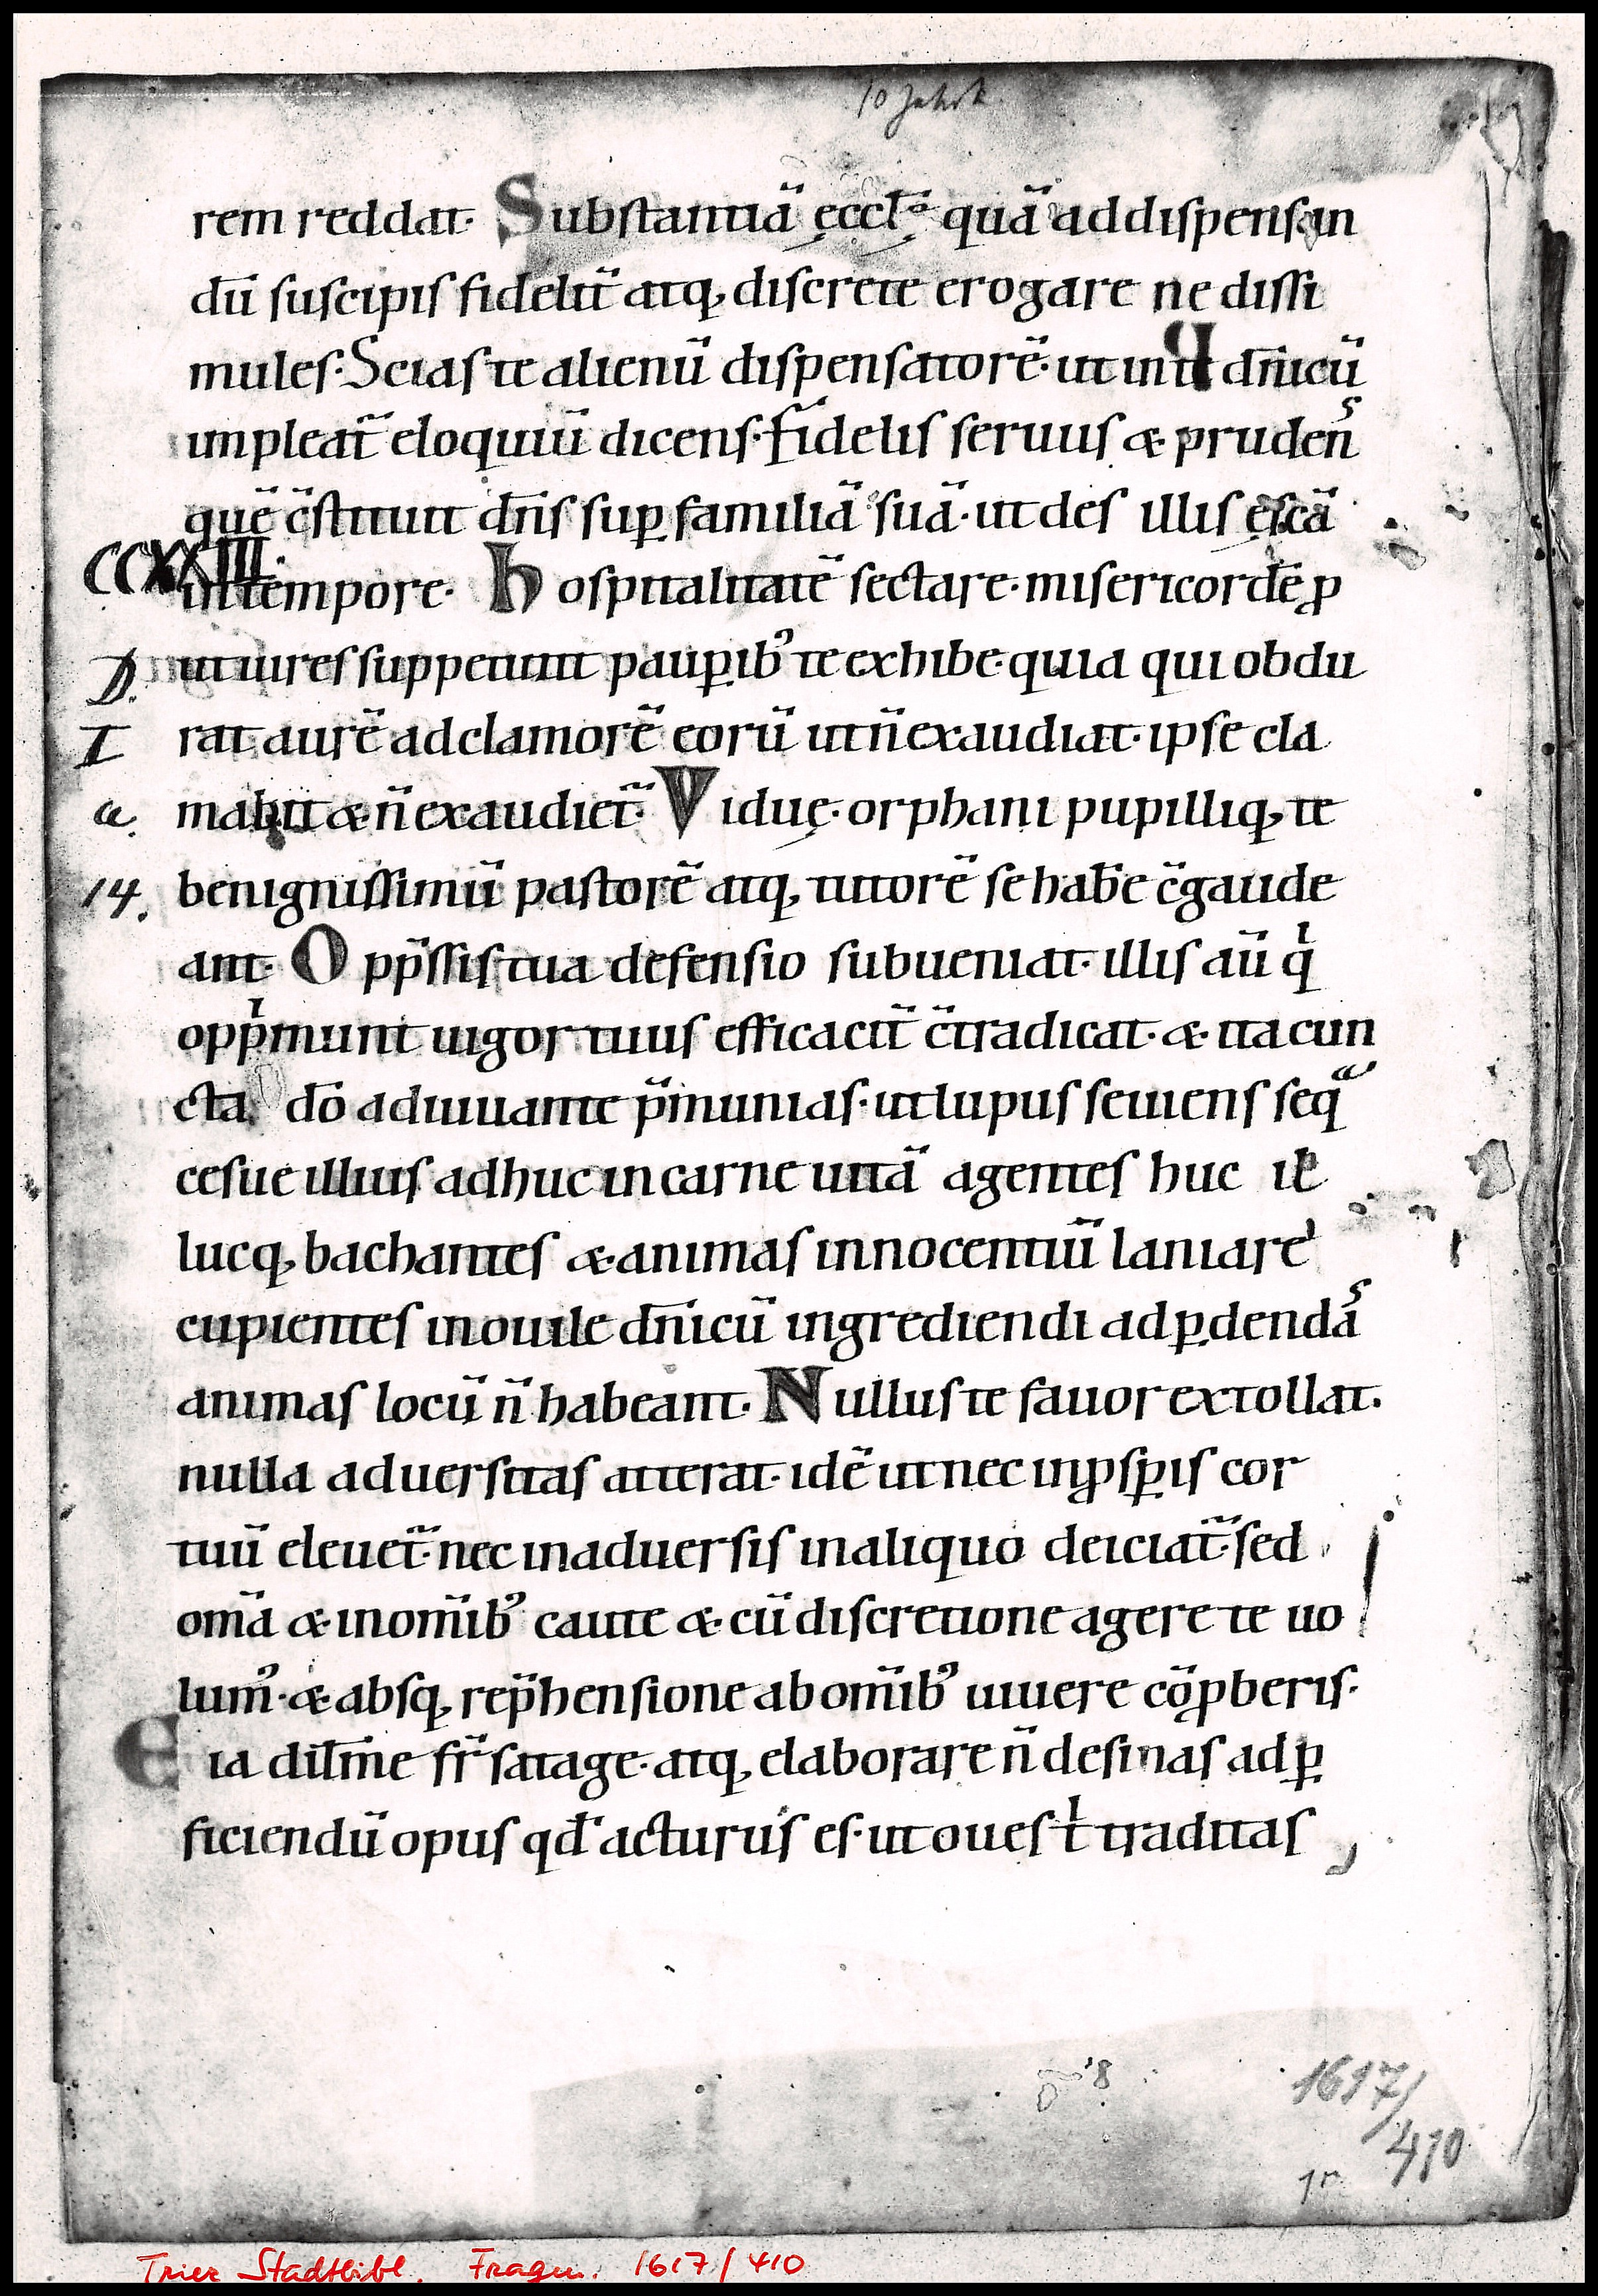 10 Jahrh
rem reddat· Substantiā ęcclę quā addispensan
dū suscipis fidelit̄ atq; discrete erogare ne dissi
mules· Scias te alienū dispensatorē· ut in te dn̄icū
impleat̄ eloquiū dicens· fidelis seruus & prudenˢ
quē c̄stituit dn̄s sup̱ familiā suā· ut des illis ęscā
CCXXIII·
in tempore· Hospitalitatē sectare· misericordē p̱
D. ut uires suppetunt paup̱ib' te exhibe· quia qui obdu
I rat aurē ad clamorē eorū ut n̄ exaudiat· ipse cla
a. mabit & n̄ exaudiet̄· Viduę· orphani pupilliq; te
14. benignissimū pastorē atq; tutorē se habēe c̄gaude
ant· Opp̄ssis tua defensio subueniat· illis aū qⁱ
oppⁱmunt uigor tuus efficacit̄ c̄tradicat· & ita cun
cta dō adiuuante p̄munias· ut lupus seuiens seqᵃ
cesue illius adhuc in carne uitā agentes huc il
lucq; bachantes & animas innocentiū laniare
cupientes in ouile dn̄icū ingrediendi ad p̱dendāˢ
animas locū n̄ habeant· Nullus te fauor extollat·
nulla aduersitas atterat· idē ut nec in p̱sp̱is cor
tuū eleuet̄· nec in aduersis in aliquo deiciat̄· sed
omā & in omīb' caute & cū discretione agere te uo
lum'· & absq; rep̄hensione ab omīb' uiuere cōp̱beris·
Eia dil̄me fr̄ satage· atq; elaborare n̄ desinas ad p̱
ficiendū opus qd̄ acturus es· ut oues tⁱ traditas
1617/
410
1r
Trier Stadtbibl. Fragm. 1617/410